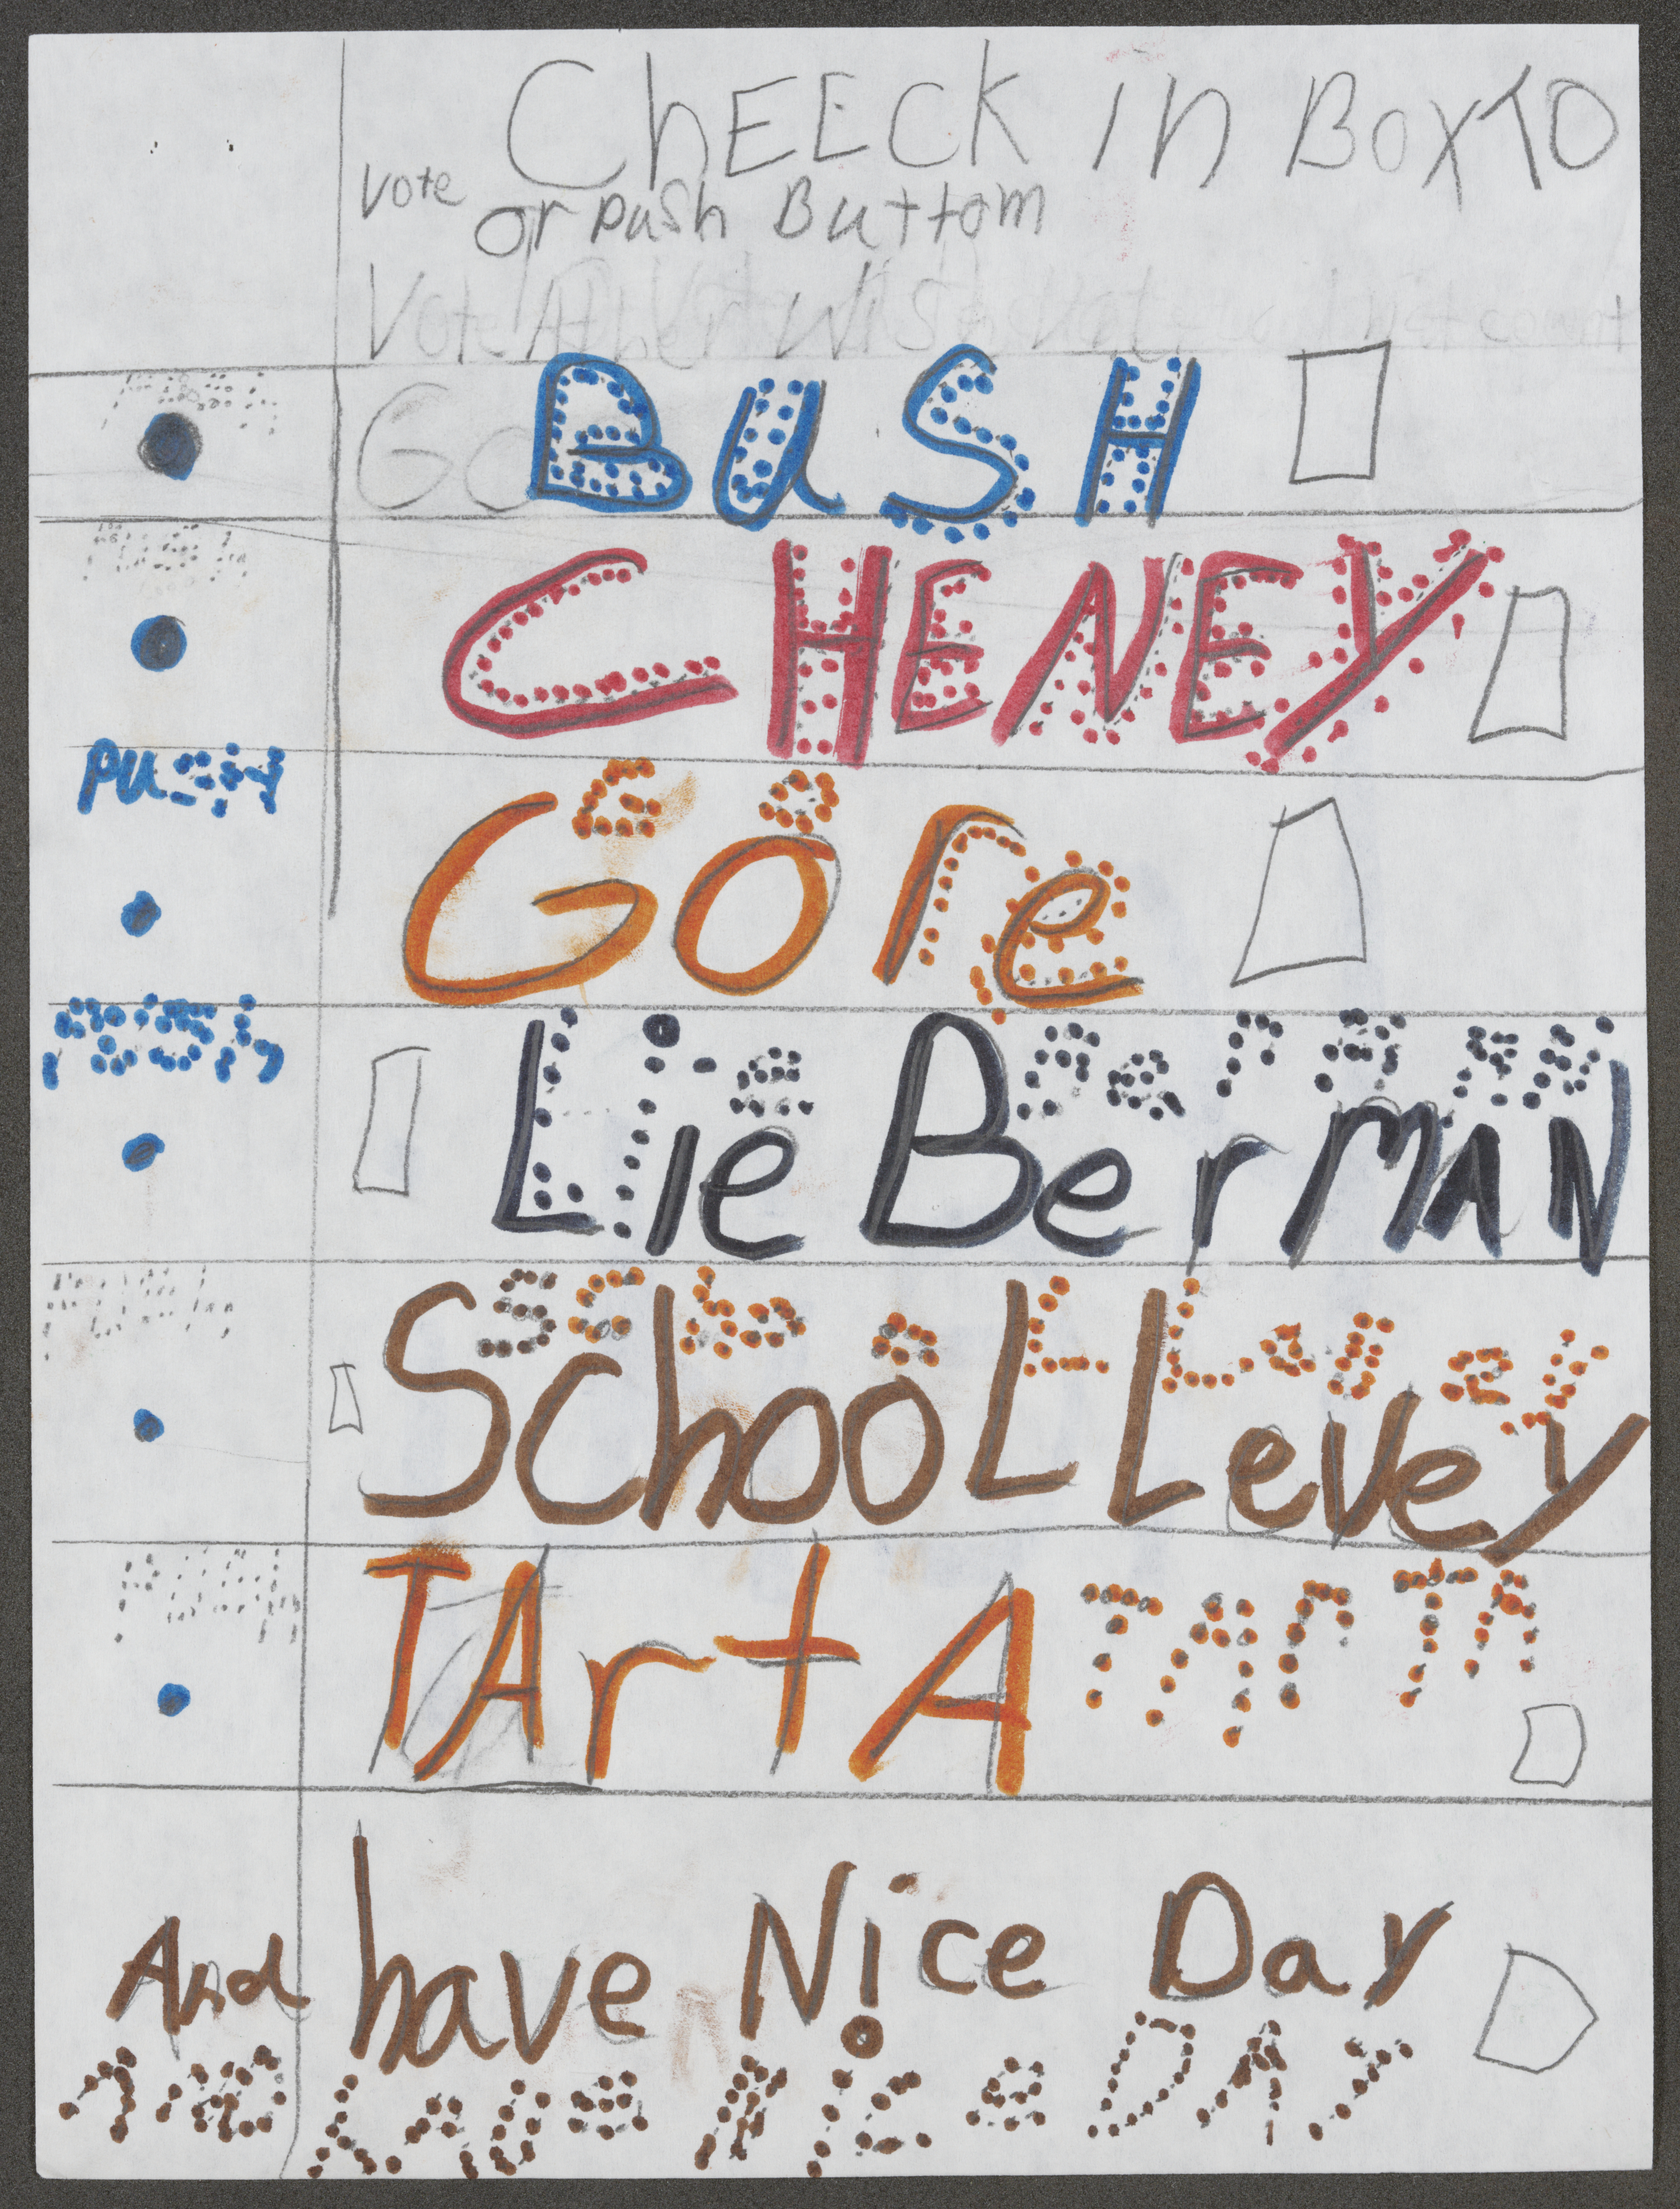 ChEECK in BoxTO
vote or push Buttom
Vote
Go BuSH
CHENEY
Gore
LieBerMAN
SchooLLevey
TArtA TArTA
And have Nice Day